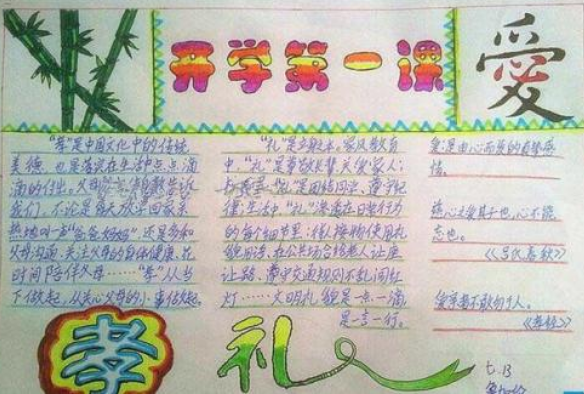 开学第一课
爱
"孝"是中国文化中的传统
美德,也是落实在生活中点点滴
滴的付出。父母
我们,不论是每天放学回家亲
热地叫一声"爸爸妈妈",还是多和
父母沟通,关注父母的身体健康、花
时间陪伴父母……"孝"从当
下做起,从关心父母的小事做起。
"礼"是立身之本。家风教育
中,"礼"是尊敬长辈,关爱家人;
"礼"是团结同学,遵守纪
律;生活中,"礼"渗透在日常行为
的每个细节里:待人接物使用礼
貌用语、在公共场合给老人让座
让路、遵守交通规则不乱闯红
灯……文明礼貌是一点一滴,
是一言一行。
爱是由心而发的真挚感
情。
慈心之爱其子也,心不能
忘也。
《吕氏春秋》
爱亲者不敢勿于人。
《孝经》
孝
礼
七.13